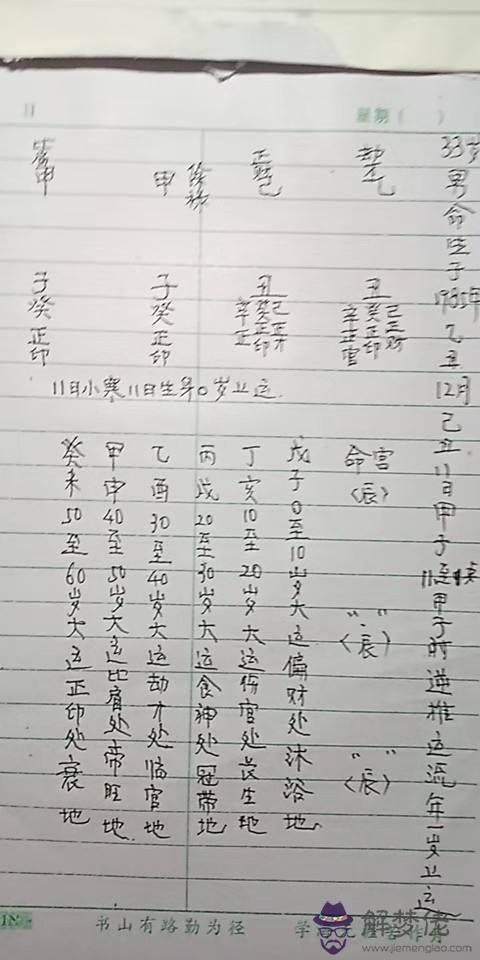 11
星期（ ）
33岁男命生于1985年乙丑12月己丑11日甲子11至1点甲子时逆推运流年一岁上运
劫乙
丑
辛癸己
正正正
官印财
命宫〈辰〉
〃〃〈辰〉
〃〃〈辰〉
正财己
丑
辛癸己
正正正
印才
甲
子癸正印
甲
子癸正印
11日小寒11日生算0岁上运.
戊子0至10岁大运偏财处沐浴地.
丁亥10至20岁大运伤官处长生地
丙戌20至30岁大运食神处冠带地
乙酉30至40岁大运劫才处临官地
甲申40至50岁大运比肩处帝旺地.
癸未50至60岁大运正印处衰地
书山有路勤为径
学
解梦佬
www.jiemenglao.com